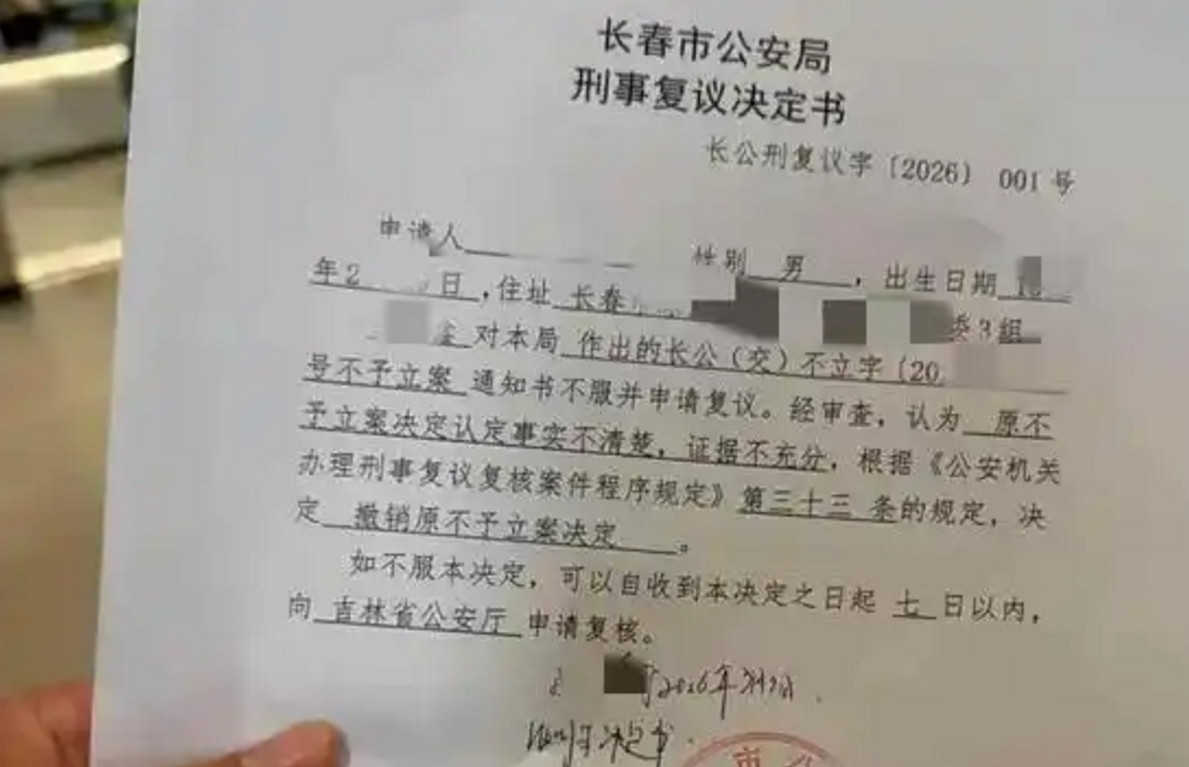 长春市公安局
刑事复议决定书
长公刑复议字〔2026〕 001号
申请人 性别 男 ，出生日期
年2 日，住址 长春
委3组
对本局 作出的长公（交）不立字〔20
号不予立案 通知书不服并申请复议。经审查，认为 原不
予立案决定认定事实不清楚，证据不充分，根据《公安机关
办理刑事复议复核案件程序规定》第三十三 条的规定，决
定 撤销原不予立案决定 。
如不服本决定，可以自收到本决定之日起 七 日以内，
向 吉林省公安厅 申请复核。
2026年
决定书.
市公